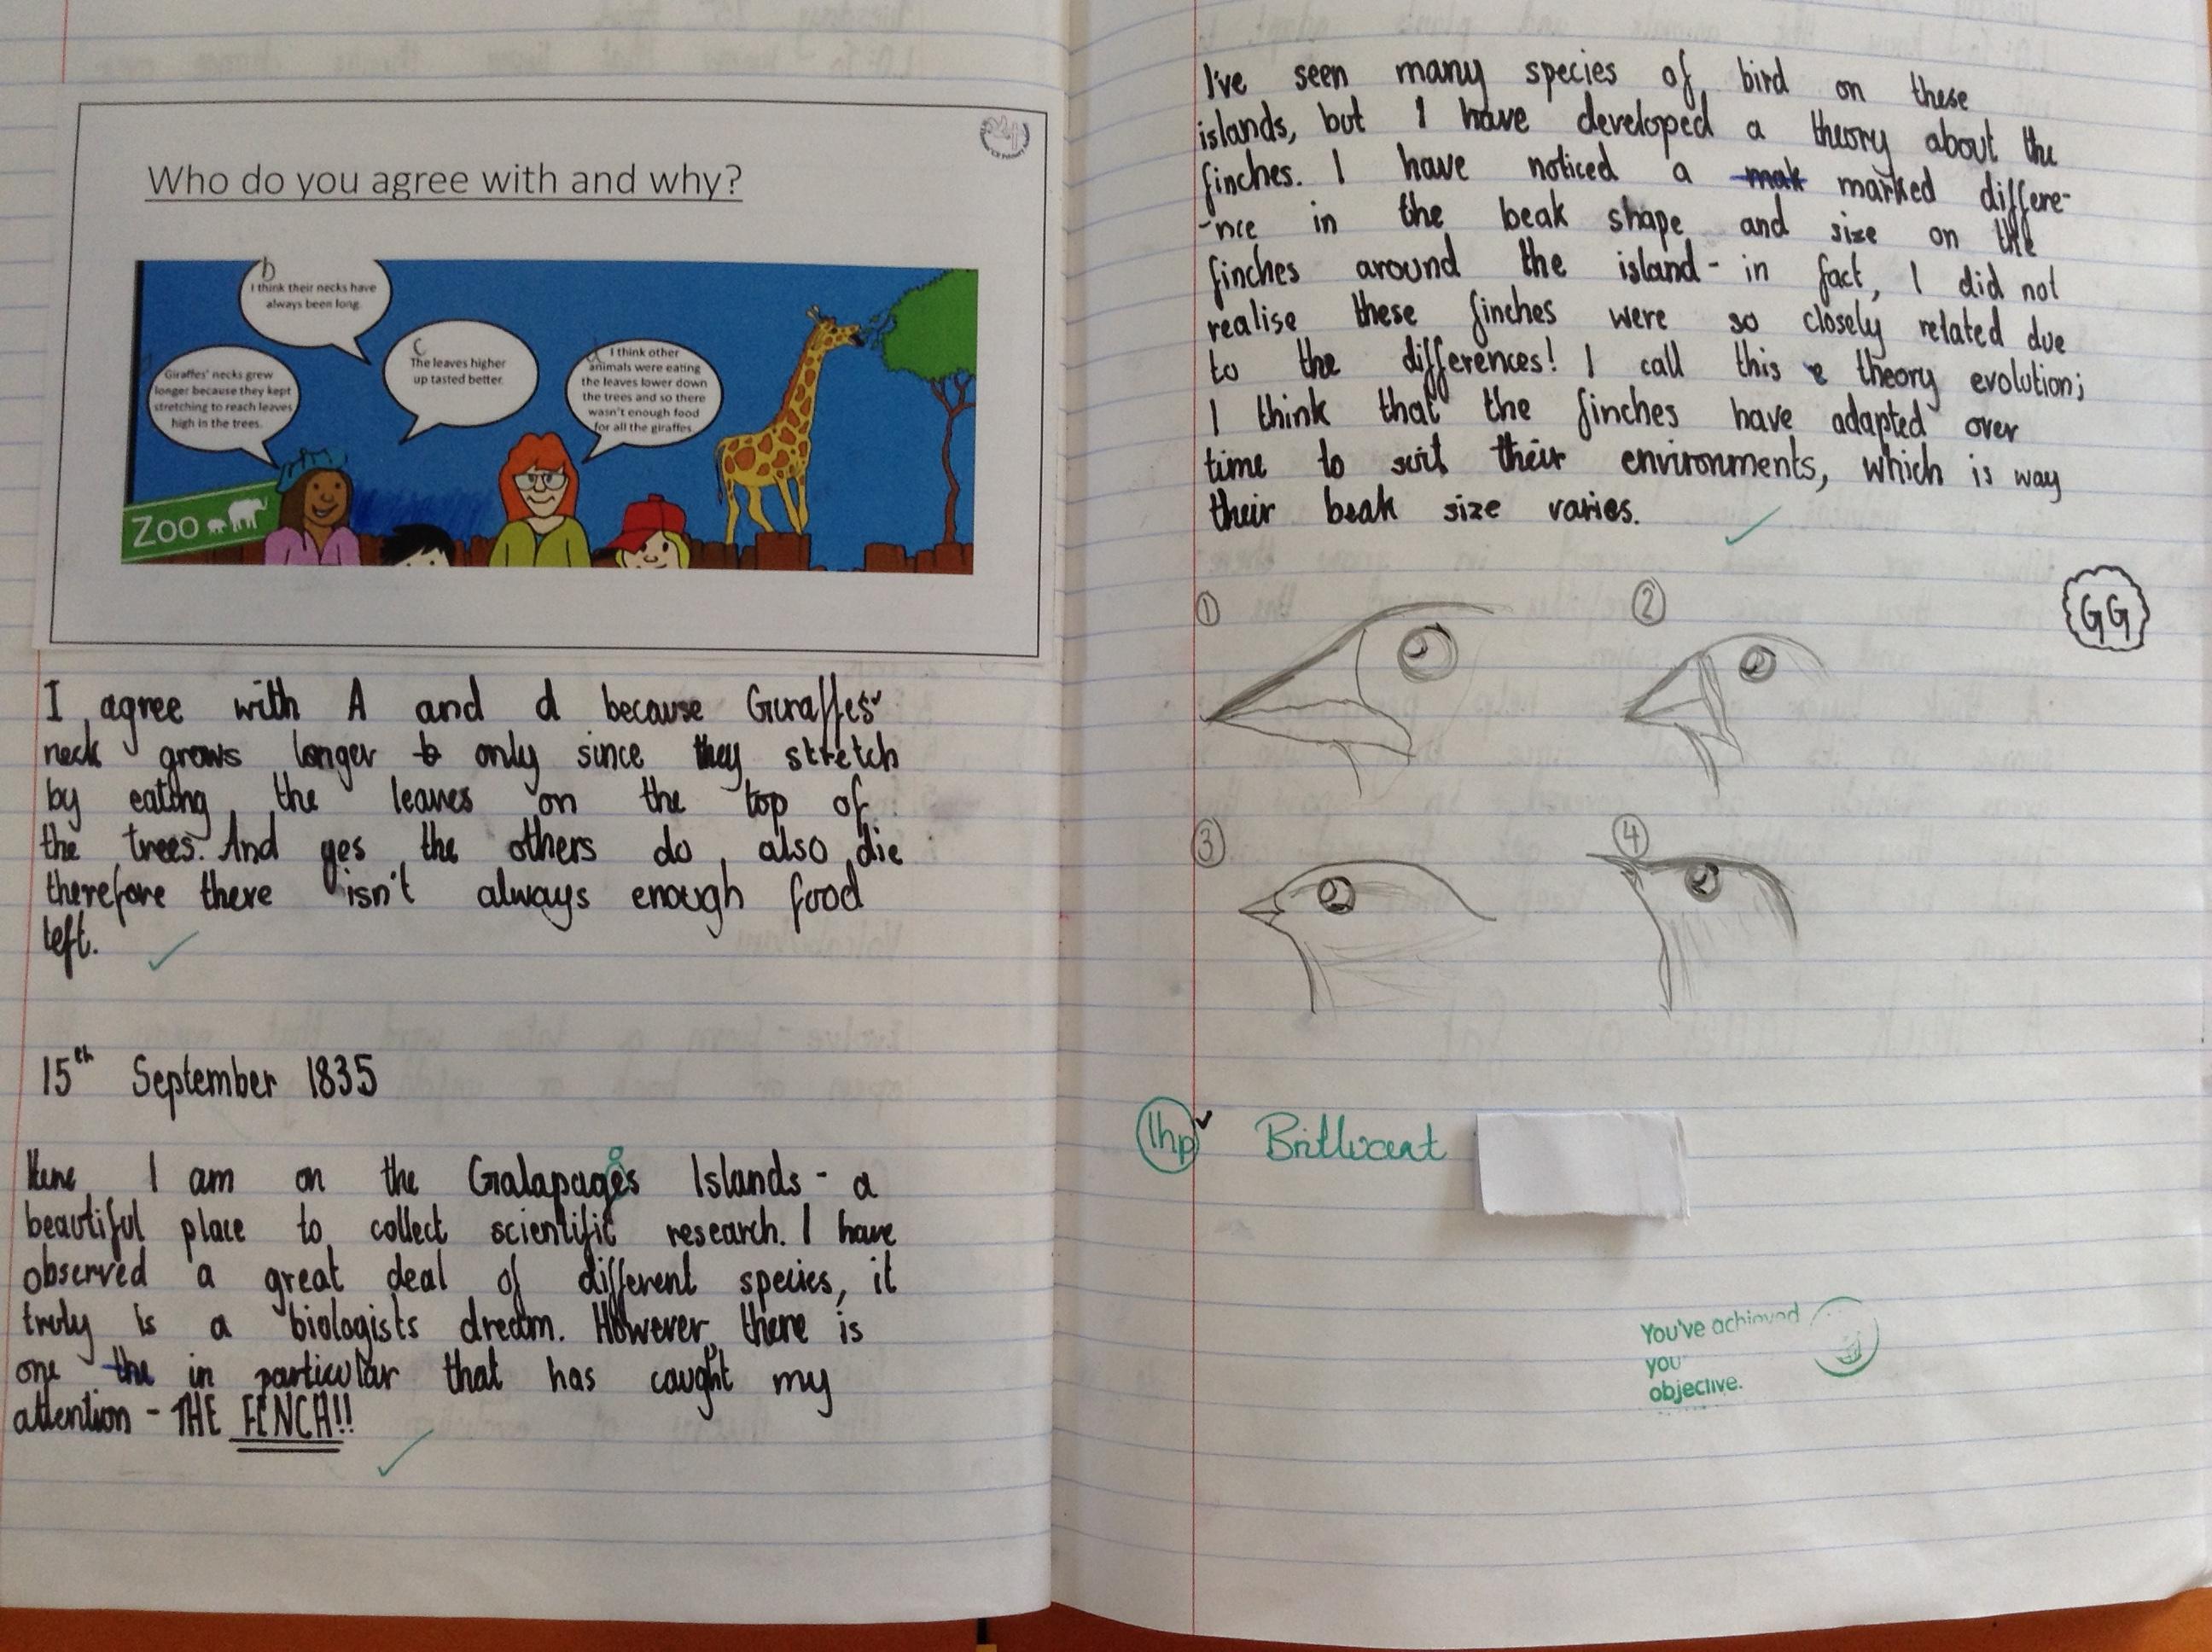 Who do you agree with and why?
b
I think their necks have
always been long.
Giraffes' necks grew
longer because they kept
stretching to reach leaves
high in the trees.
C
The leaves higher
up tasted better.
d
I think other
animals were eating
the leaves lower down
the trees and so there
wasn't enough food
for all the giraffes
Zoo
I agree with A and d because Giraffes'
neck grows longer only since they stretch
by eating the leaves on the top of
the trees. And yes the others do also die
therefore there isn't always enough food
left.
15th September 1835
Here I am on the Galapagos Islands - a
beautiful place to collect scientific research. I have
observed a great deal of different species, it
truly is a biologists dream. However, there is
one the in particular that has caught my
attention - THE FINCH!!
I've seen many species of bird on these
islands, but I have developed a theory about the
finches. I have noticed a mak marked differe-
-nce in the beak shape and size on the
finches around the island - in fact, I did not
realise these finches were so closely related due
to the differences! I call this e theory evolution;
I think that the finches have adapted over
time to suit their environments, which is way
their beak size varies.
1
2
GG
3
4
1hp
Brilliant
You've achieved
you
objective.